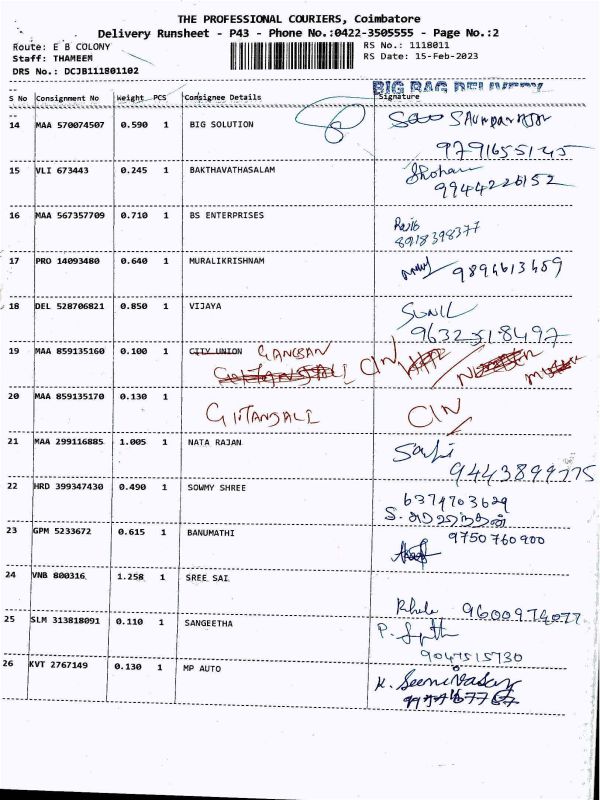 THE PROFESSIONAL COURIERS, Coimbatore
Delivery Runsheet - P43 - Phone No.:0422-3505555 - Page No.:2
Route: E B COLONY RS No.: 1118011
Staff: THAMEEM RS Date: 15-Feb-2023
DRS No.: DCJB111801102
BIG BAG DELIVERY
S No Consignment No Weight PCS Consignee Details Signature
14 MAA 570074507 0.590 1 BIG SOLUTION
9791655145
15 VLI 673443 0.245 1 BAKTHAVATHASALAM
9944226152
16 MAA 567357709 0.710 1 BS ENTERPRISES
Rajib
8918398377
17 PRO 14093480 0.640 1 MURALIKRISHNAM
9894613459
18 DEL 528706821 0.850 1 VIJAYA SUNIL
9632518497
19 MAA 859135160 0.100 1 CITY UNION CIN
20 MAA 859135170 0.130 1
GITANJALI CIN
21 MAA 299116885 1.005 1 NATA RAJAN
9443899775
22 HRD 399347430 0.490 1 SOWMY SHREE 6374703629
23 GPM 5233672 0.615 1 BANUMATHI 9750760900
24 VNB 800316 1.258 1 SREE SAI
9600974077
25 SLM 313818091 0.110 1 SANGEETHA
9047515730
26 KVT 2767149 0.130 1 MP AUTO
K. Seenivasan